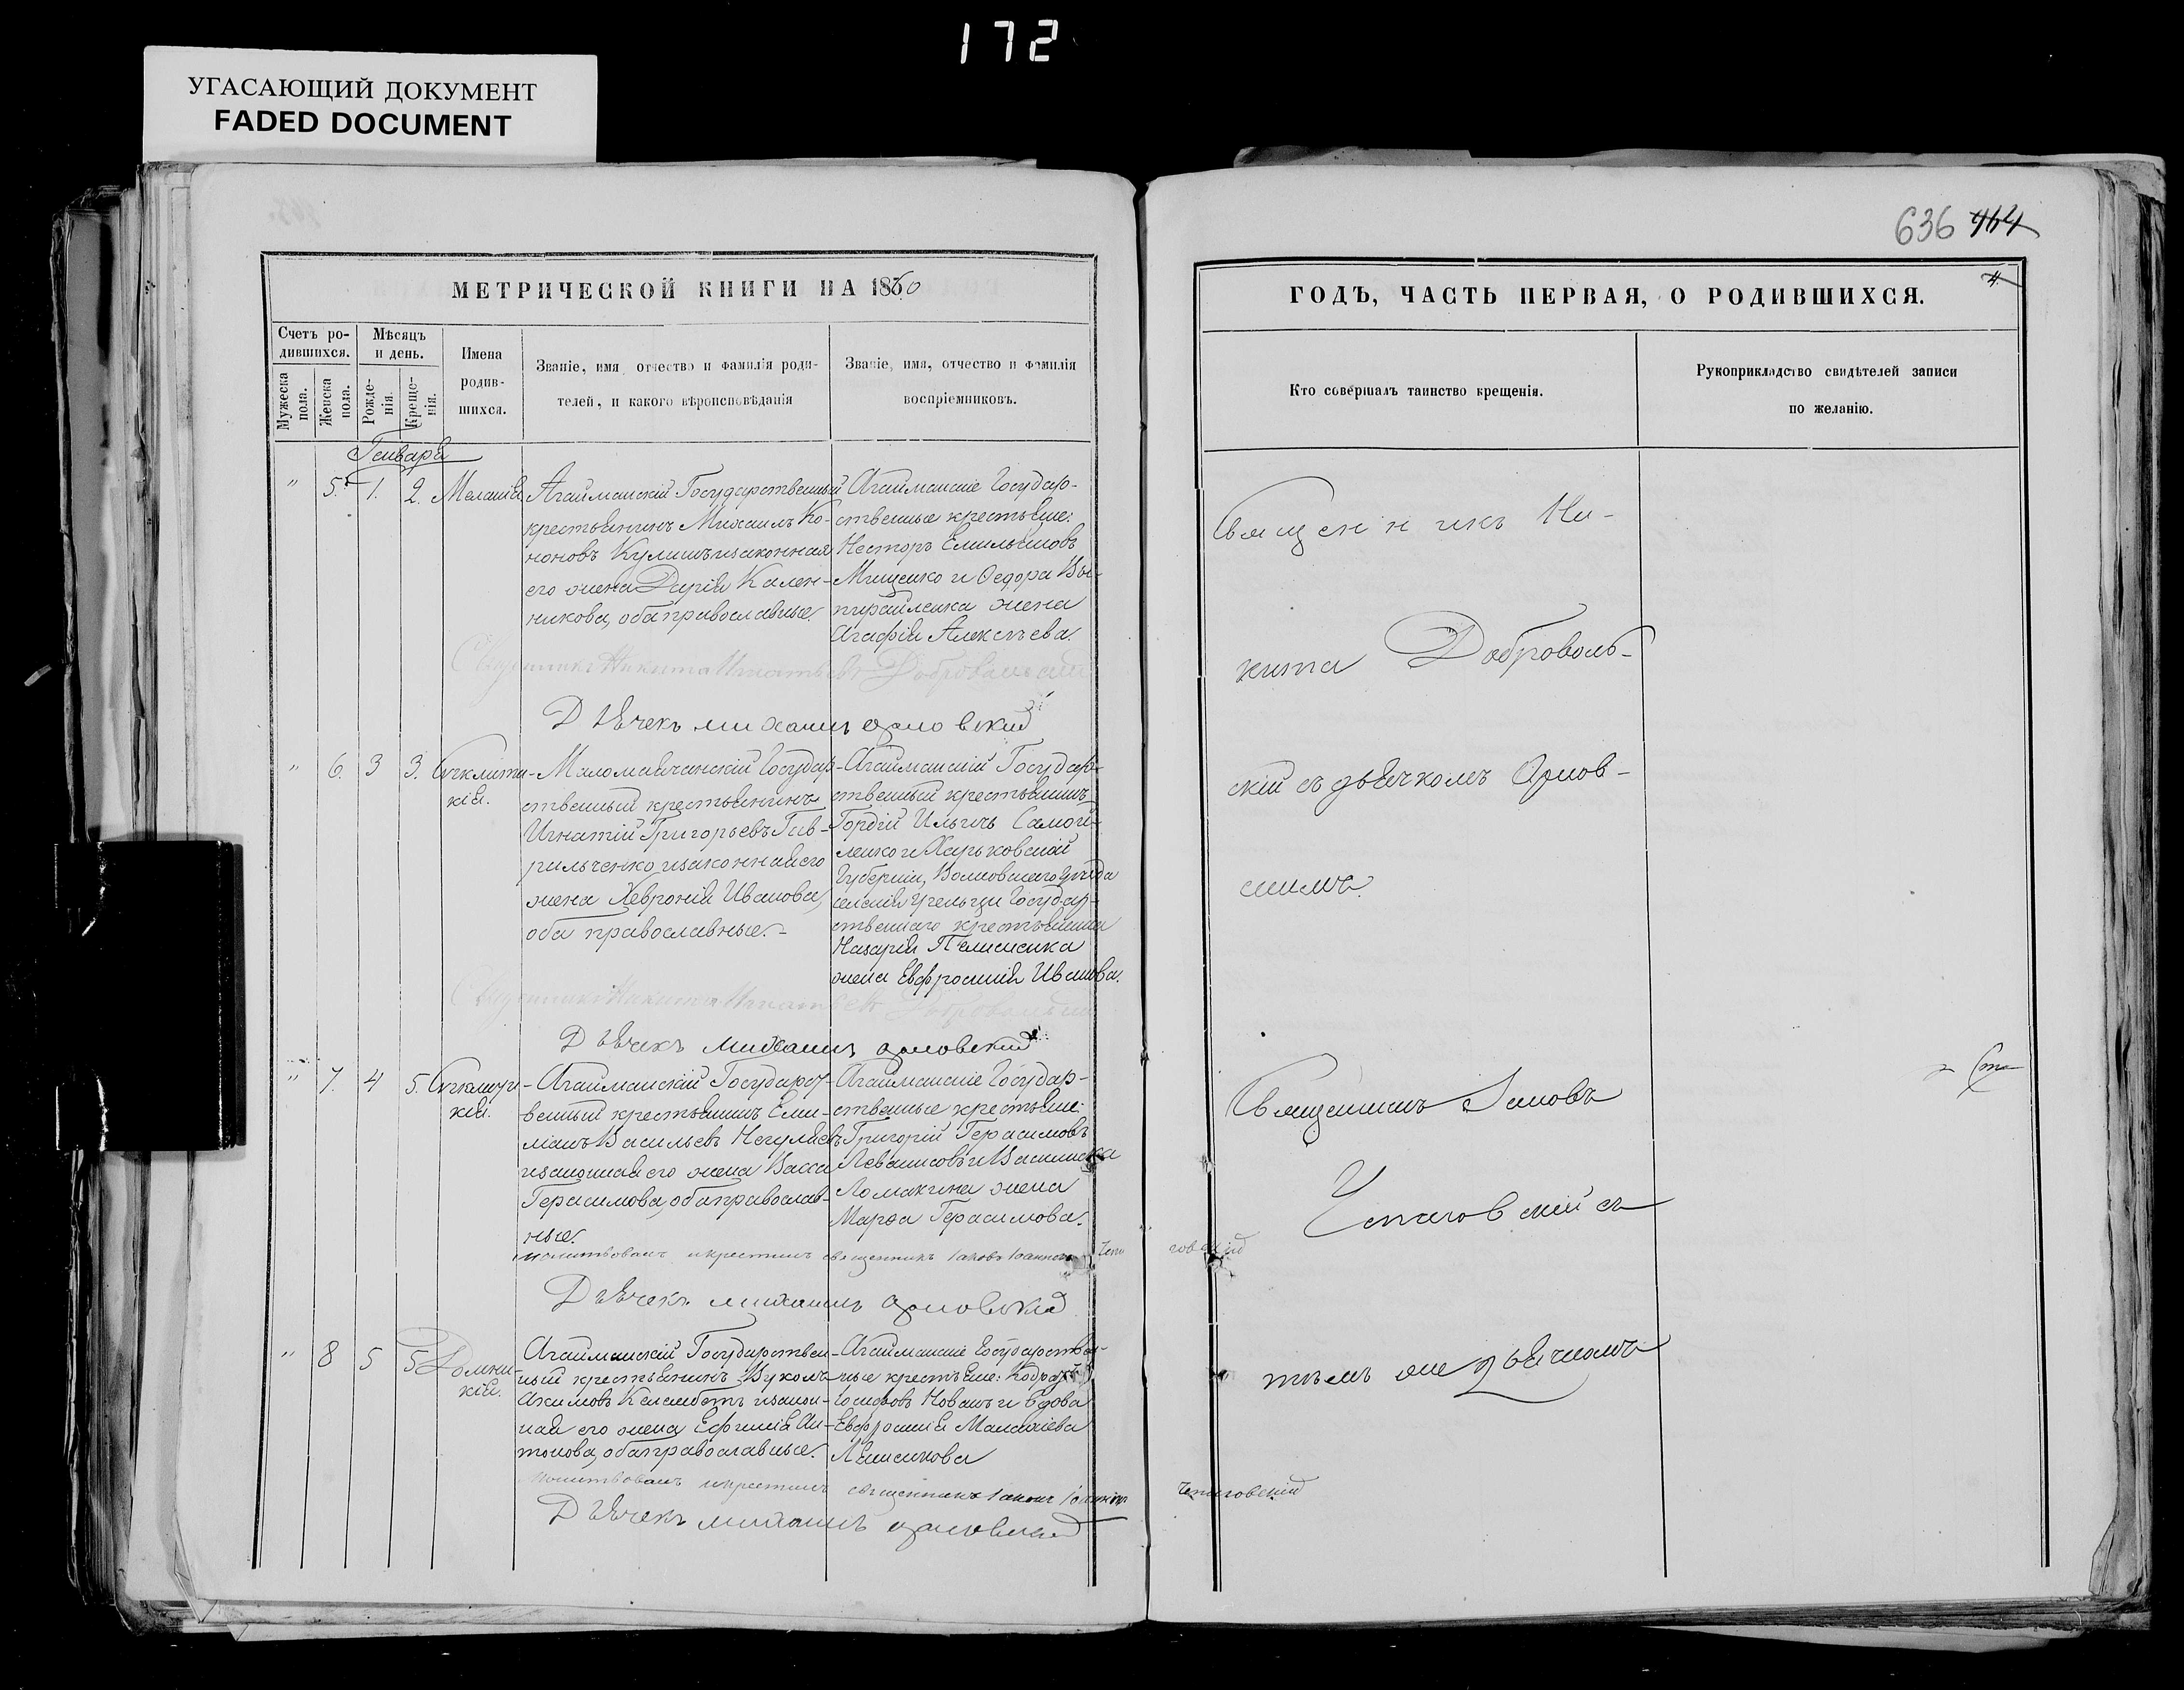 172
УГАСАЮЩИЙ ДОКУМЕНТ
FADED DOCUMENT
636 464
МЕТРИЧЕСКОЙ КНИГИ НА 1860
Счетъ ро-
дившихся.
Мужеска пола.
Женска пола.
Мѣсяцъ
и день.
Рожде-
нія.
Креще-
нія.
Имена
родив-
шихся.
Званіе, имя отчество и фамилія роди-
телей, и какого вѣроисповѣданія
Званіе, имя, отчество и фамилія
воспріемниковъ.
Генваря
" 5. 1. 2. Меланія
Агайманскій Государственный
крестьянинъ Михаилъ Ко-
ноновъ Кулишъ изаконная
его жена Дарія Кален-
никова, оба православные.
Агайманскіе Государ-
ственные крестьяне:
Несторъ Емильяновъ
Мищенко и Ѳедора
жена
Агафія Алексѣева.
Священникъ Никита Игнатьевъ Добровольскій
Дьячекъ михаилъ орловскій
" 6. 3 3. Сѵнклити-
кія.
Маломаячанскій Государ-
ственный крестьянинъ
Игнатій Григорьевъ Гав-
рильченко изаконная его
жена Хевронія Иванова,
оба православные.-
Агайманскій Государ-
ственный крестьянинъ
Гордій Ильичъ Самой-
ленко и Харьковской
Губерніи, Волковскаго уѣзда
селенія Государ-
ственнаго крестьянина
Назарія
жена Евфросинія Иванова.
Священникъ Никита Игнатьевъ Добровольскій
Дьячекъ Михаилъ орловскій
" 7. 4 5. Сѵнклити-
кія.
Агайманскій Государст-
венный крестьянинъ Еми-
лианъ Васильевъ Негуляевъ
изаконная его жена Васса
Герасимова, оба православ-
ные.
Агайманскіе Государ-
ственные крестьяне:
Григорій Герасимовъ
и
Ломакина жена
Марѳа Герасимова.
молитвовалъ икрестилъ священникъ Іаковъ Іоанновъ Чепиговскій
Дьячекъ михаилъ орловскій
" 8 5 5 Домни-
кія.
Агайманскій Государствен-
ный крестьянинъ Вуколъ
Акимовъ изакон-
ная его жена Ефимія Ан-
тонова, оба православные.
Агайманскіе Государствен-
ные крестьяне: Кодратъ
Іосифовъ Новакъ и вдова
Евфросинія Малахіева
молитвовалъ икрестилъ священникъ Іаковъ Іоанновъ Чепиговскій
Дьячекъ михаилъ орловскій
ГОДЪ, ЧАСТЬ ПЕРВАЯ, О РОДИВШИХСЯ.
Кто совершалъ таинство крещенія.
Рукоприкладство свидѣтелей записи
по желанію.
Священникъ Ни-
кита Доброволь-
скій съ дьячкомъ Орлов-
скимъ.
Священникъ Іаковъ
Чепиговскій съ
тѣмъ же дьячкомъ